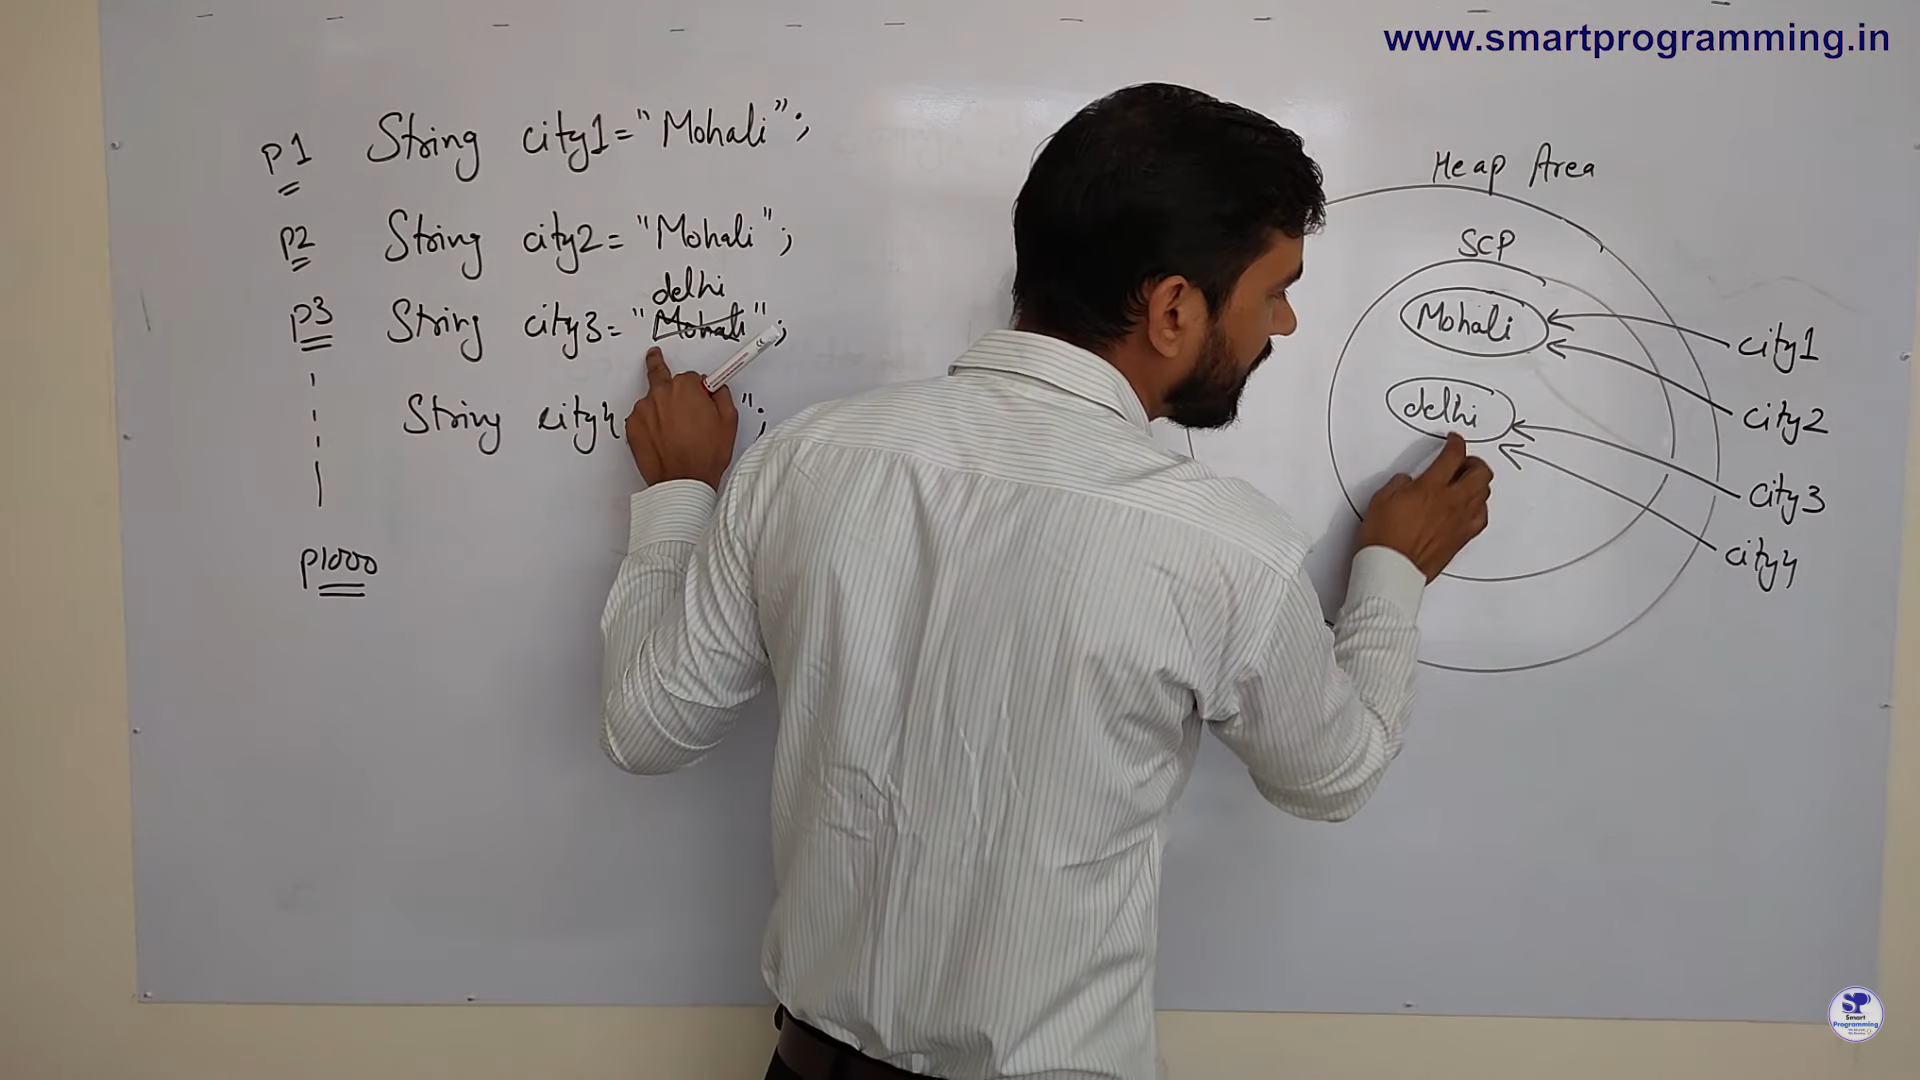 www.smartprogramming.in
p1 String city1 = "Mohali";
p2 String city2 = "Mohali";
delhi
p3 String city3 = "Mohali";
String city4 ";
p1000
Heap Area
SCP
Mohali
delhi
city1
city2
city3
city4
SP
Smart
Programming